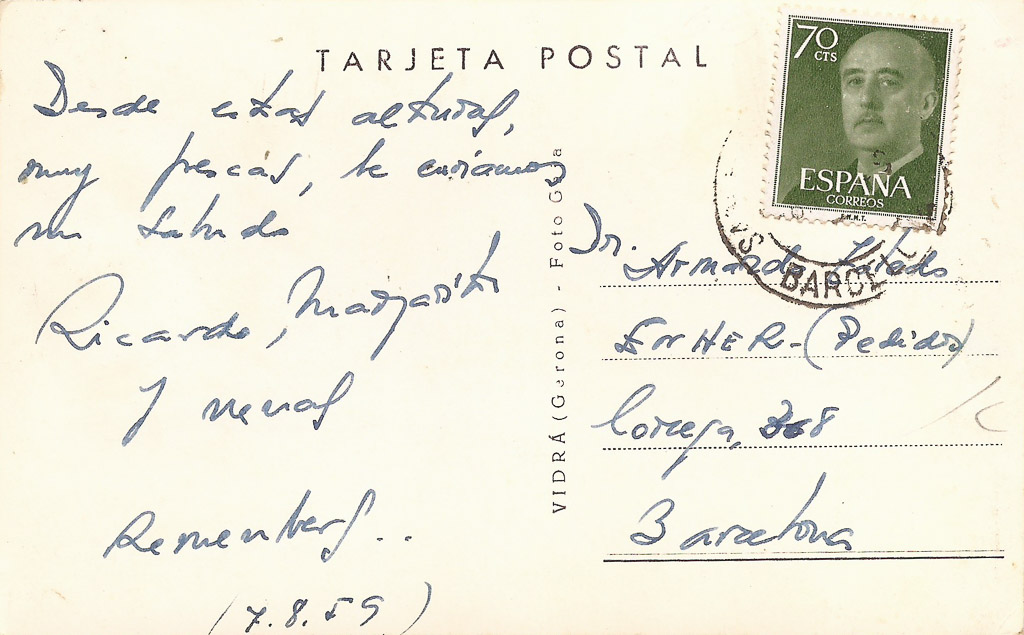 TARJETA POSTAL
70
CTS
ESPAÑA
CORREOS
F.N.M.T.
BARCE
Desde estas alturas,
muy frescas, te enviamos
un saludo
Ricardo, Margarita
y nenas
Remember..
(7.8.59)
VIDRÁ (Gerona) - Foto
Dr. Armando
ENHER-(Pedidos)
Corcega, 368
Barcelona